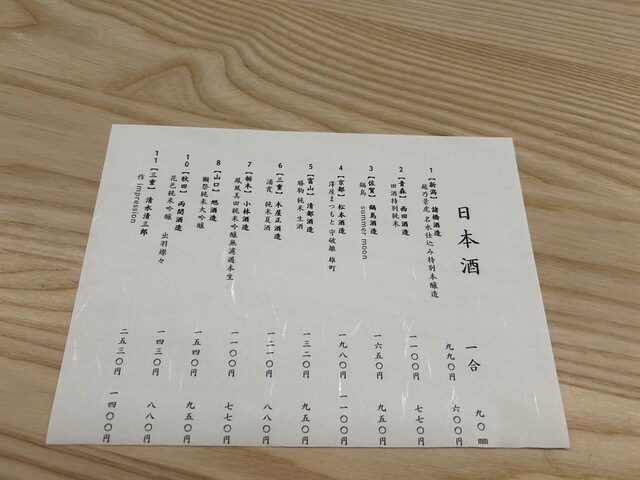 日本酒
一合
九〇mm
1【新潟】諸橋酒造
越乃景虎 名水仕込み特別本醸造
九九〇円
六〇〇円
2【青森】西田酒造
田酒特別純米
一一〇〇円
七七〇円
3【佐賀】鍋島酒造
鍋島 summer moon
一六五〇円
九五〇円
4【京都】松本酒造
澤屋まつもと守破離 雄町
一九八〇円
一一〇〇円
5【富山】清都酒造
勝駒 純米 生酒
一三二〇円
九五〇円
6【三重】木屋正酒造
浦霞 純米夏酒
一二一〇円
八八〇円
7【栃木】小林酒造
鳳凰美田純米吟醸無濾過本生
一一〇〇円
七七〇円
8【山口】旭酒造
獺祭純米大吟醸
一五四〇円
九五〇円
10【秋田】両関酒造
花邑純米吟醸 出羽燦々
一四三〇円
八八〇円
11【三重】清水清三郎
作 impression
二五三〇円
一四〇〇円